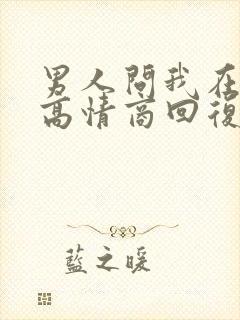 男人問我在
高情商回復
藍之暖